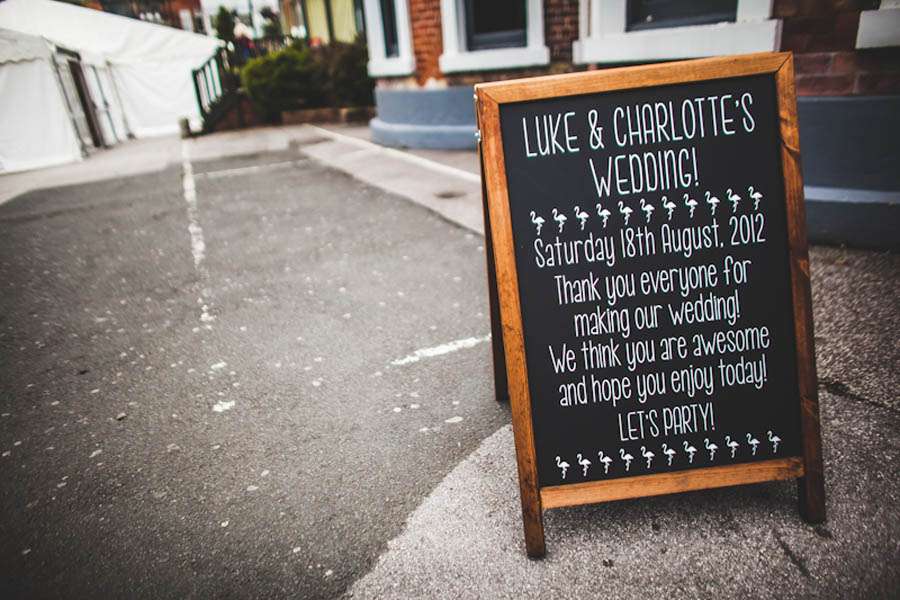 LUKE & CHARLOTTE'S
WEDDING!
Saturday 18th August, 2012
Thank you everyone for
making our wedding!
We think you are awesome
and hope you enjoy today!
LET'S PARTY!